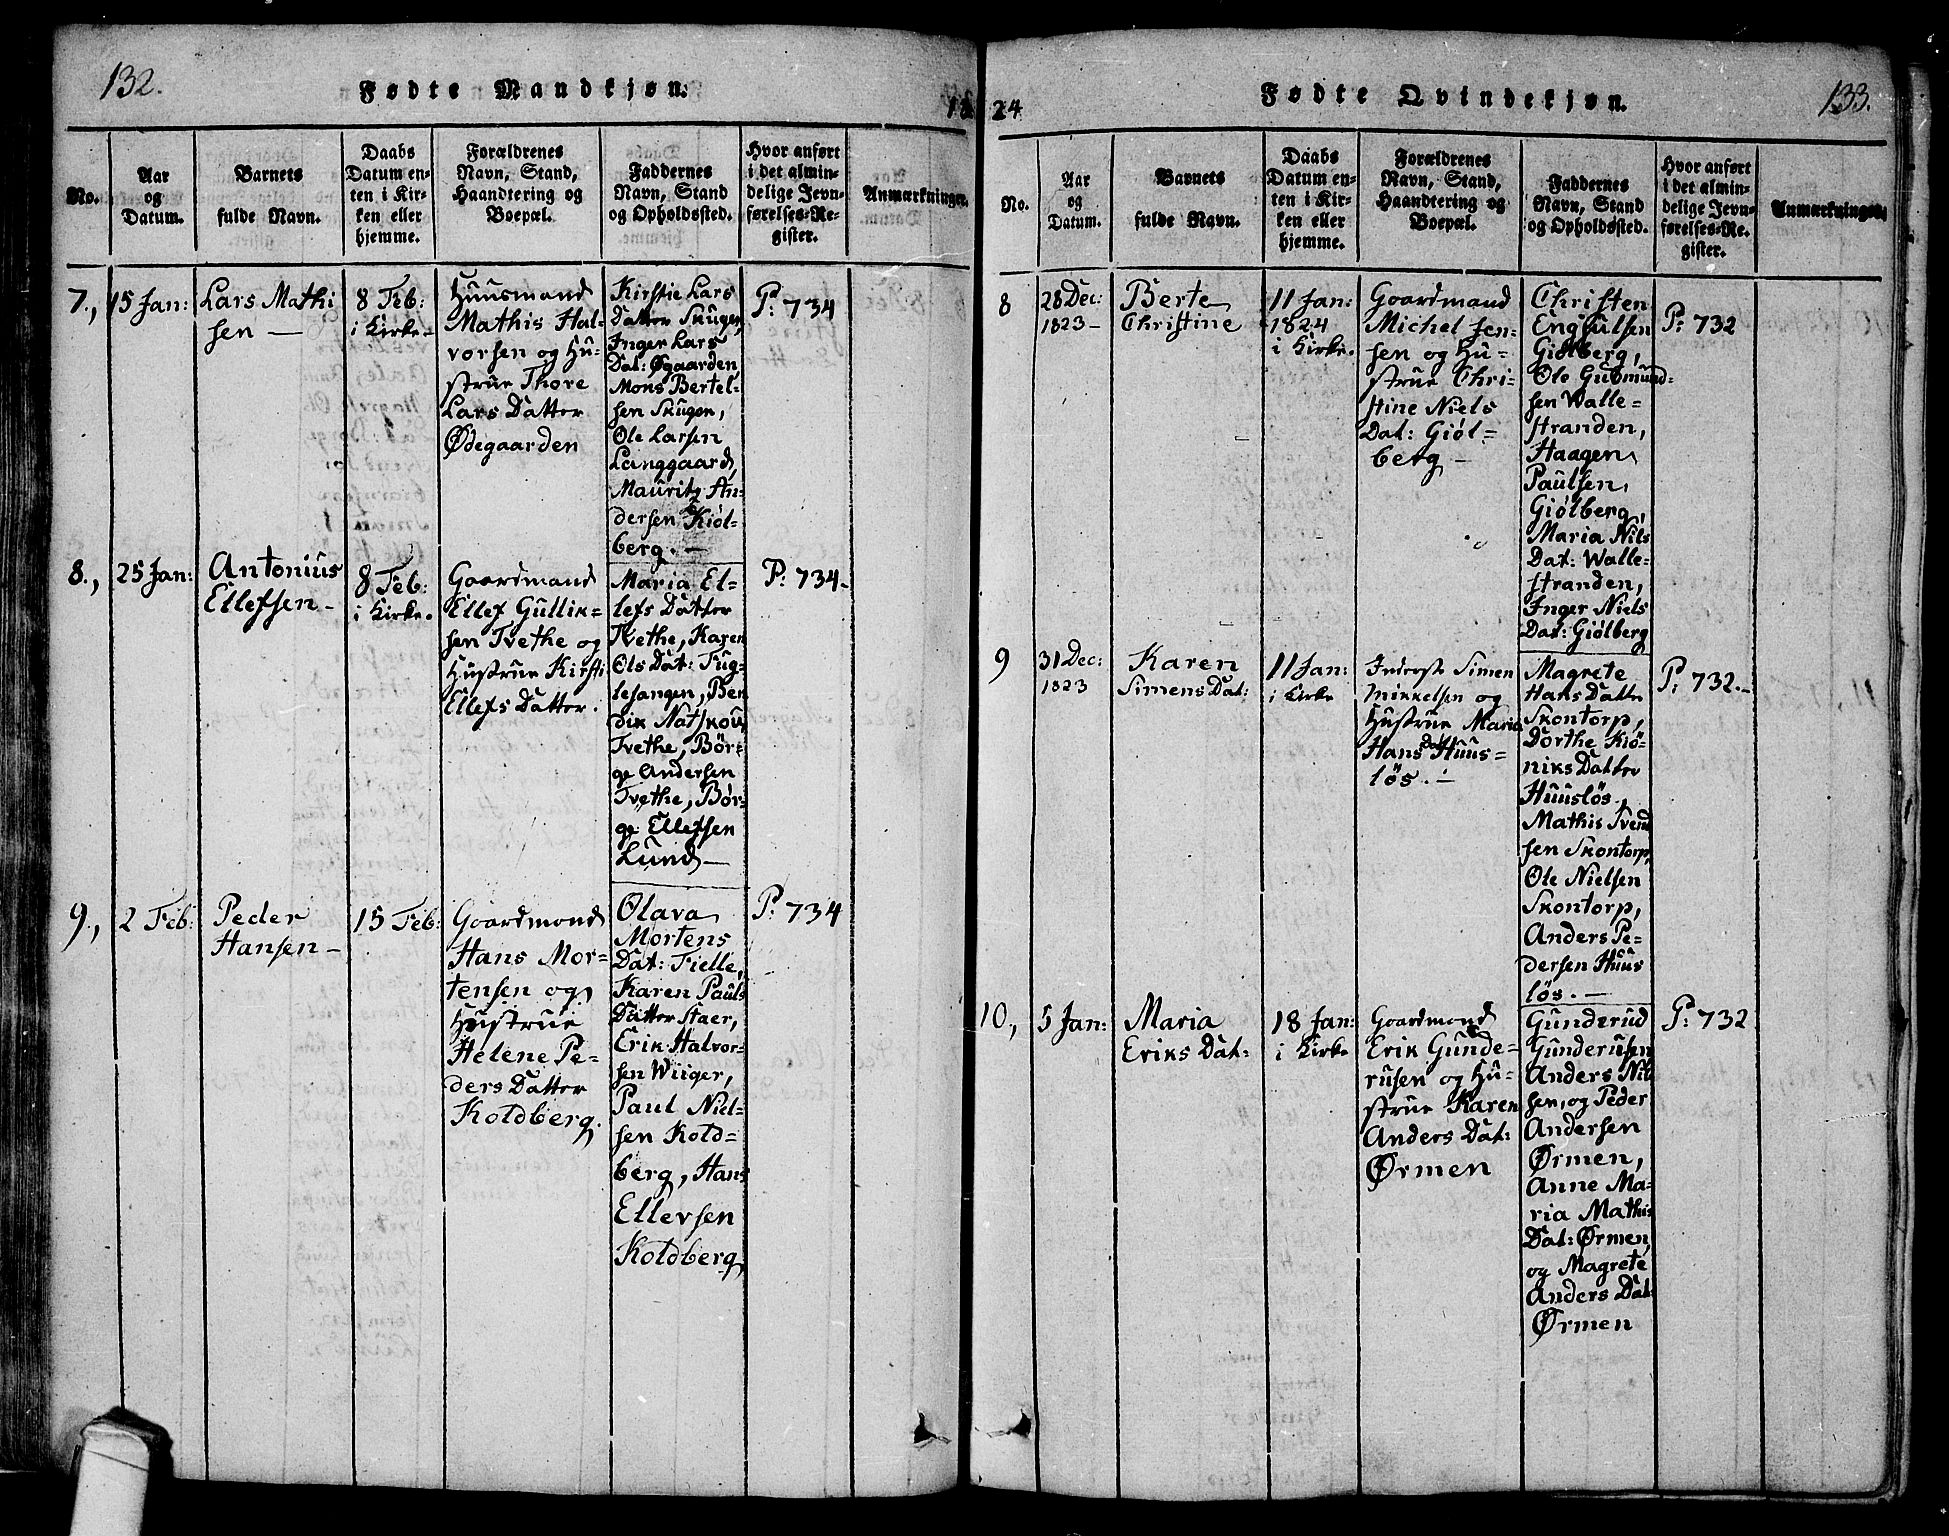 132.
Fødte Mandkjøn.
18
No.
Aar
og
Datum.
Barnets
fulde Navn.
Daabs
Datum en-
ten i Kir-
ken eller
hjemme.
Forældrenes
Navn, Stand,
Haandtering og
Boepæl.
Faddernes
Navn, Stand
og Opholdssted.
Hvor anført
i det almin-
delige Jevn-
førelses-Re-
gister.
Anmærkninger.
7.,
15 Jan:
Lars Mathi
sen —
8 Feb:
i Kirke —
Huusmand
Mathis Hal-
vorsen og Hu-
strue Thore
Lars Datter
Ødegaarden
Kirstie Lars
Datter Skugen,
Inger Lars
Dat: Øgaarden,
Mons Bertel-
sen Skugen,
Ole Larsen
Langgaard,
Mauritz An-
dersen Kiøl-
berg. —
P: 734
8.,
25 Jan:
Antonius
Ellefsen —
8 Feb:
i Kirke.
Goardmand
Ellef Gullik-
sen Tvethe og
Hustrue Kirsti
Ellefs Datter.
Maria El-
lefs Datter
Tvethe, Karen
Ols Dat: Fug-
lesangen, Ben
dik Natskou
Tvethe, Bør-
ge Andersen
Tvethe, Bør-
ge Ellefsen
Lund —
P: 734 -
9.,
2 Feb:
Peder
Hansen —
15 Feb:
Goardmond
Hans Mor-
tensen og
Hustrue
Helene Pe-
ders Datter
Koldberg.
Olava
Mortens
Dat: Fielle,
Karen Pauls
Datter Staer,
Erik Halvor-
sen Wiiger,
Paul Niel-
sen Kold-
berg, Hans
Ellevsen
Koldberg
P: 734
24
Fødte Qvindekjøn.
133.
No.
Aar
og
Datum.
Barnets
fulde Navn.
Daabs
Datum en-
ten i Kir-
ken eller
hjemme.
Forældrenes
Navn, Stand,
Haandtering og
Boepæl.
Faddernes
Navn, Stand
og Opholdssted.
Hvor anført
i det almin-
delige Jevn-
førelses-Re-
gister.
Anmærkninger.
8
28 Dec:
1823 -
Berte
Christine
11 Jan:
1824
i Kirke.
Goardmand
Michel Jen-
sen og Hu-
strue Chri-
stine Niels
Dat: Giøl-
berg —
Christen
Engulsen
Giølberg,
Ole Gudmund-
sen Walle-
stranden,
Haagen
Paulsen,
Giølberg,
Maria Nils
Dat: Walle-
stranden,
Inger Niels
Dat: Giølberg
P: 732
9
31 Dec:
1823
Karen
Simens Dat:
11 Jan:
i Kirke
Inderste Simen
Mikkelsen og
Hustrue Maria
Hans Dat Huus-
løs. —
Magrete
Hans Datter
Skontorp,
Dorthe Kiö-
niks Datter
Huusløs,
Mathis Svend
sen Skontorp,
Ole Nielsen
Skontorp,
Anders Pe-
dersen Huus
løs. —
P: 732. -
10,
5 Jan:
Maria
Eriks Dat:
18 Jan:
i Kirke
Goardmond
Erik Gunde-
rusen og Hu-
strue Karen
Anders Dat:
Ørmen
Gunderud
Gunderusen
Anders Nil
sen, og Peder
Andersen
Ørmen,
Anne Ma-
ria Mathis
Dat: Ørmen,
og Magrete
Anders Dat:
Ørmen
P: 732